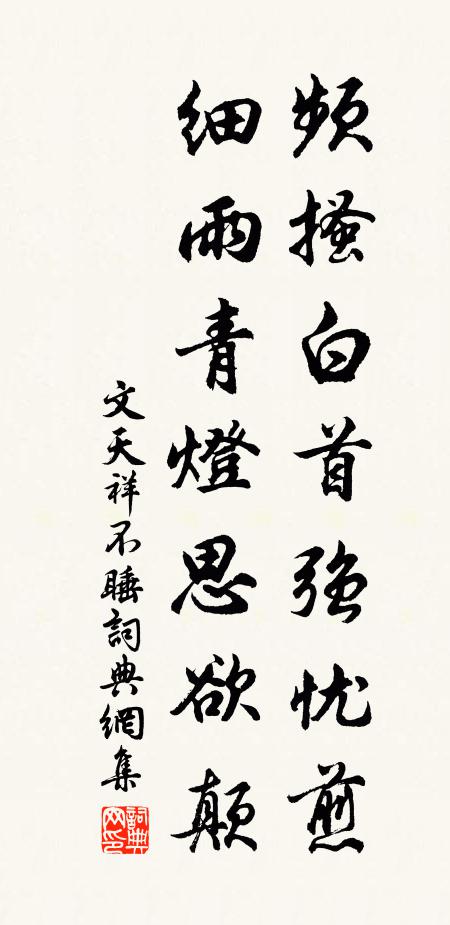 频搔白首强忧煎
细雨青燈思欲颠
文天祥不睡詞典網集
詞典網印